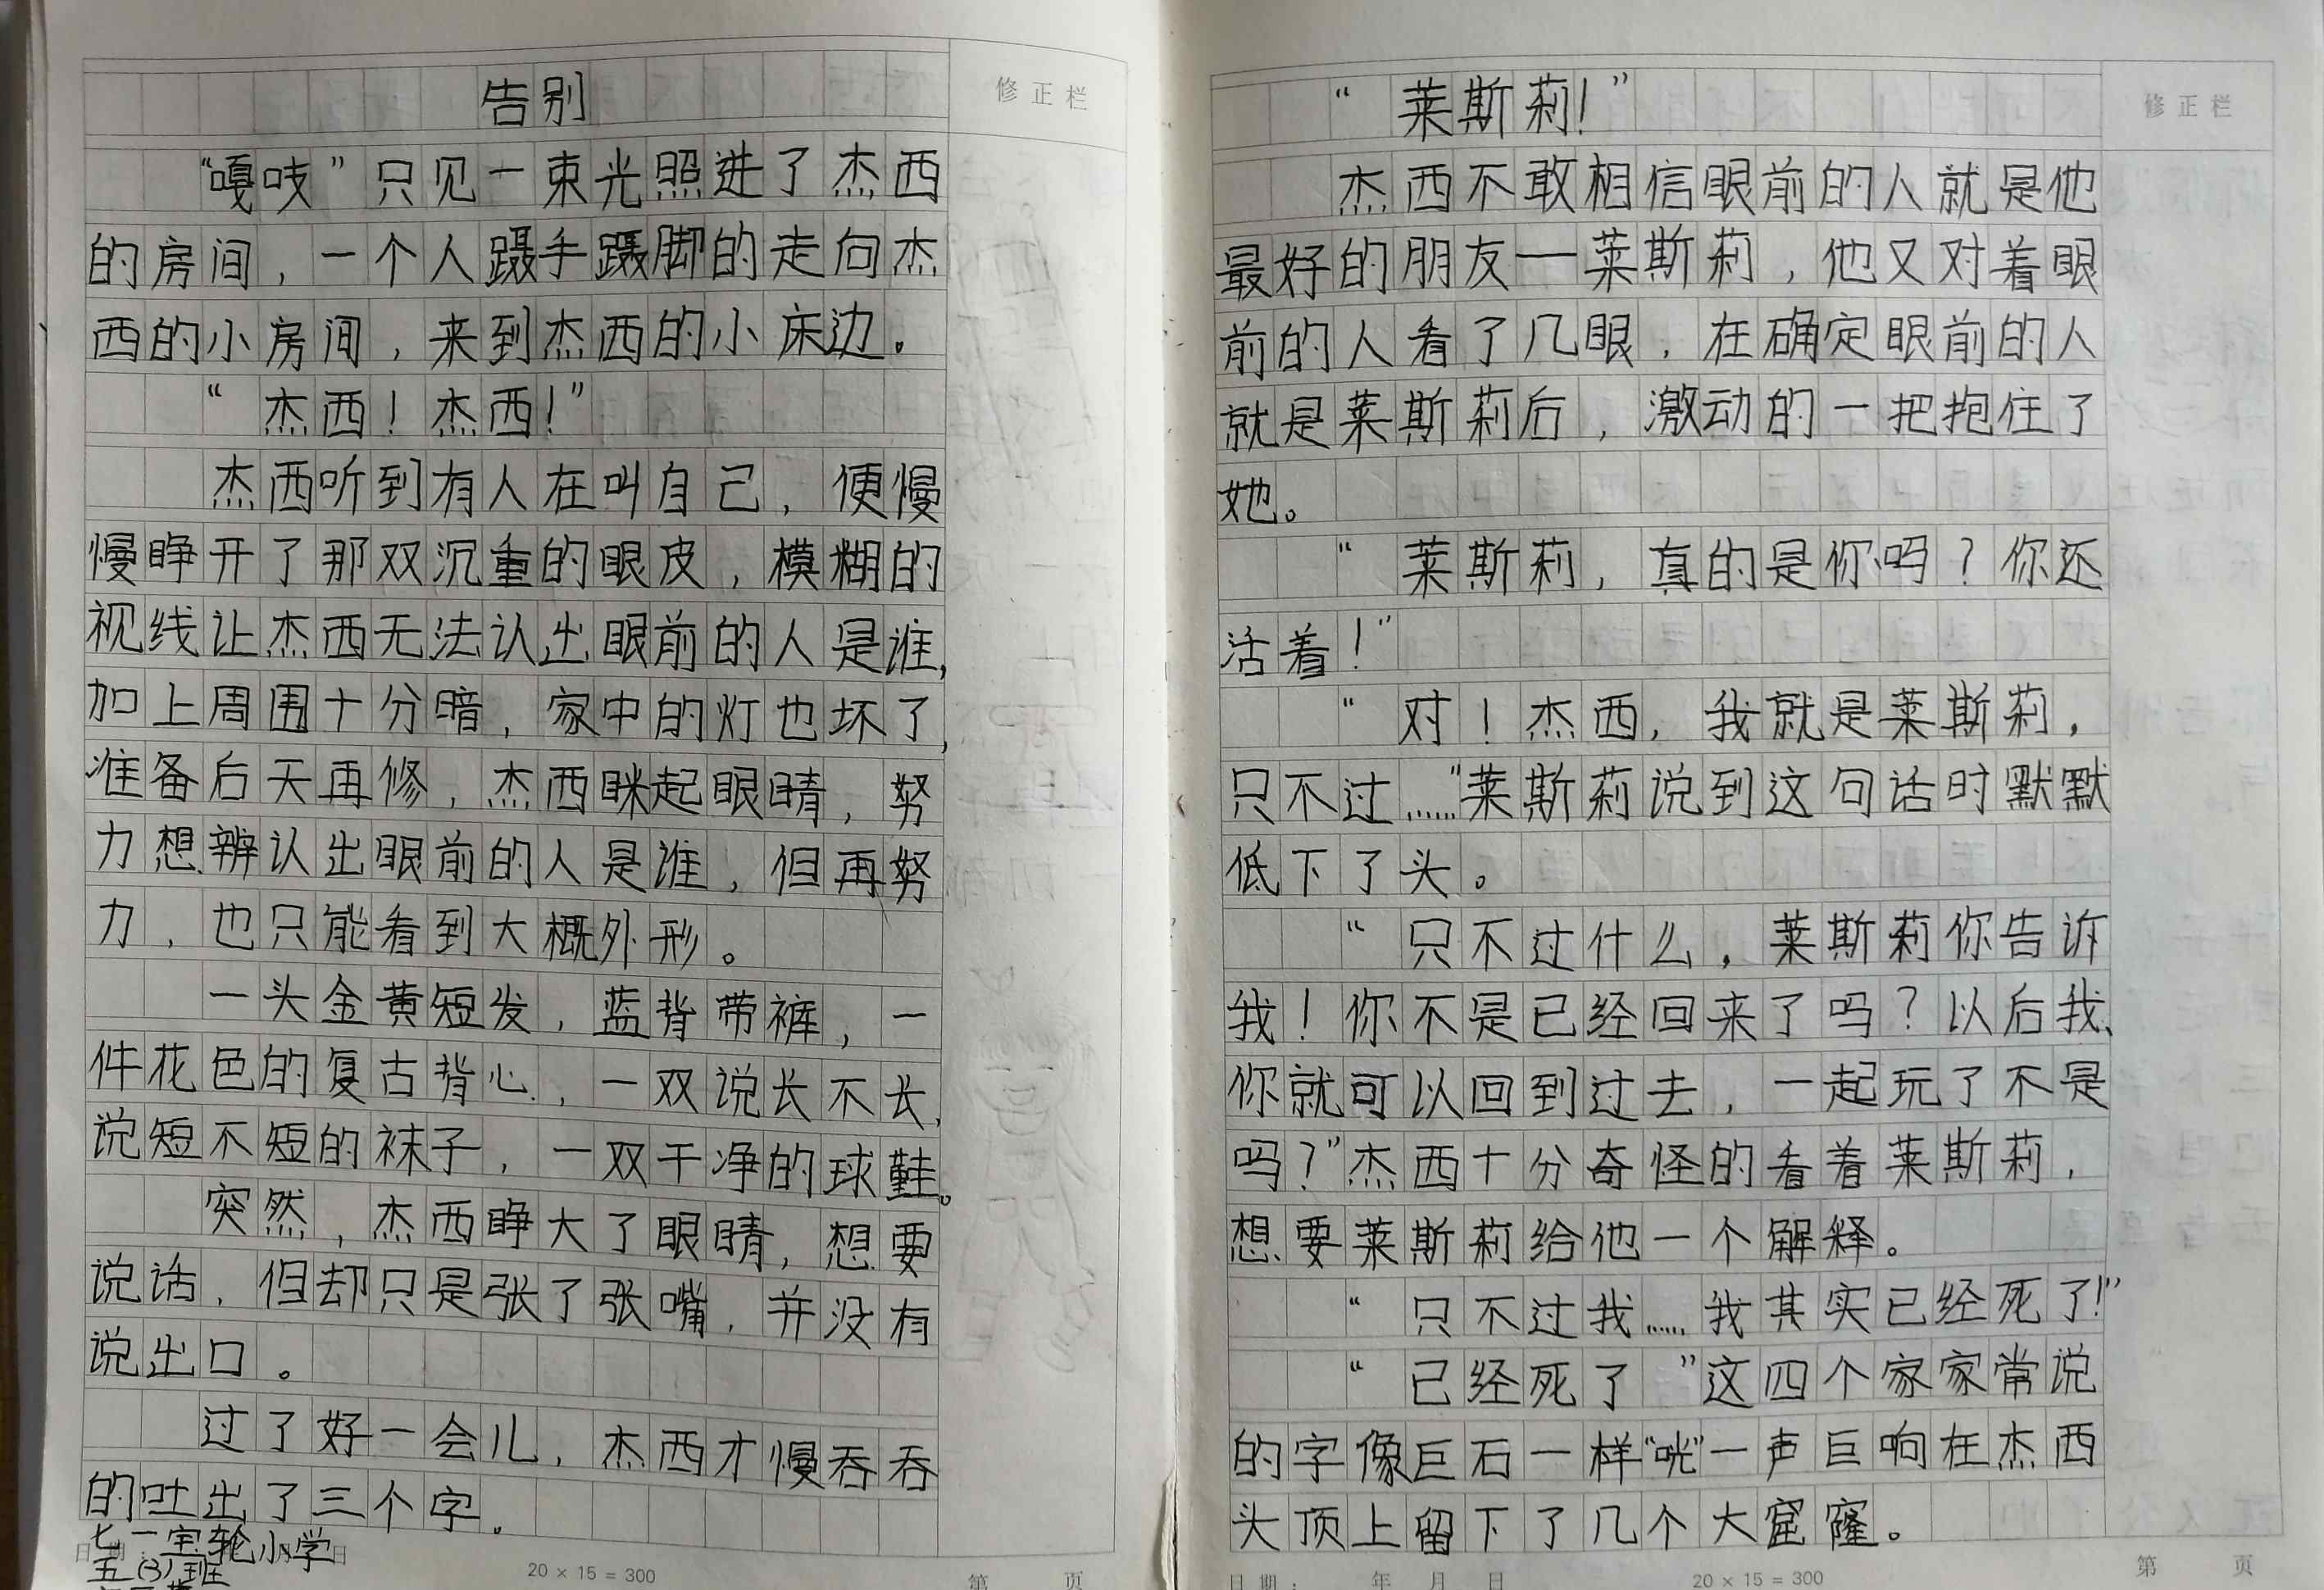 告别
修正栏
“嘎吱”只见一束光照进了杰西
的房间，一个人蹑手蹑脚的走向杰
西的小房间，来到杰西的小床边。
“杰西！杰西！”
杰西听到有人在叫自己，便慢
慢睁开了那双沉重的眼皮，模糊的
视线让杰西无法认出眼前的人是谁，
加上周围十分暗，家中的灯也坏了，
准备后天再修，杰西眯起眼睛，努
力想辨认出眼前的人是谁，但再努
力，也只能看到大概外形。
一头金黄短发，蓝背带裤，一
件花色的复古背心，一双说长不长，
说短不短的袜子，一双干净的球鞋。
突然，杰西睁大了眼睛，想要
说话，但却只是张了张嘴，并没有
说出口。
过了好一会儿，杰西才慢吞吞
的吐出了三个字。
七一宝轮小学
五(3)班
20×15=300
第 页
“莱斯莉！”
修正栏
杰西不敢相信眼前的人就是他
最好的朋友一莱斯莉，他又对着眼
前的人看了几眼，在确定眼前的人
就是莱斯莉后，激动的一把抱住了
她。
“莱斯莉，真的是你吗？你还
活着！”
“对！杰西，我就是莱斯莉，
只不过……”莱斯莉说到这句话时默默
低下了头。
“只不过什么，莱斯莉你告诉
我！你不是已经回来了吗？以后我、
你就可以回到过去，一起玩了不是
吗？”杰西十分奇怪的看着莱斯莉，
想要莱斯莉给他一个解释。
“只不过我……我其实已经死了！”
“已经死了”这四个家家常说
的字像巨石一样“咣”一声巨响在杰西
头顶上留下了几个大窟窿。
日期： 年 月 日
20×15=300
第 页